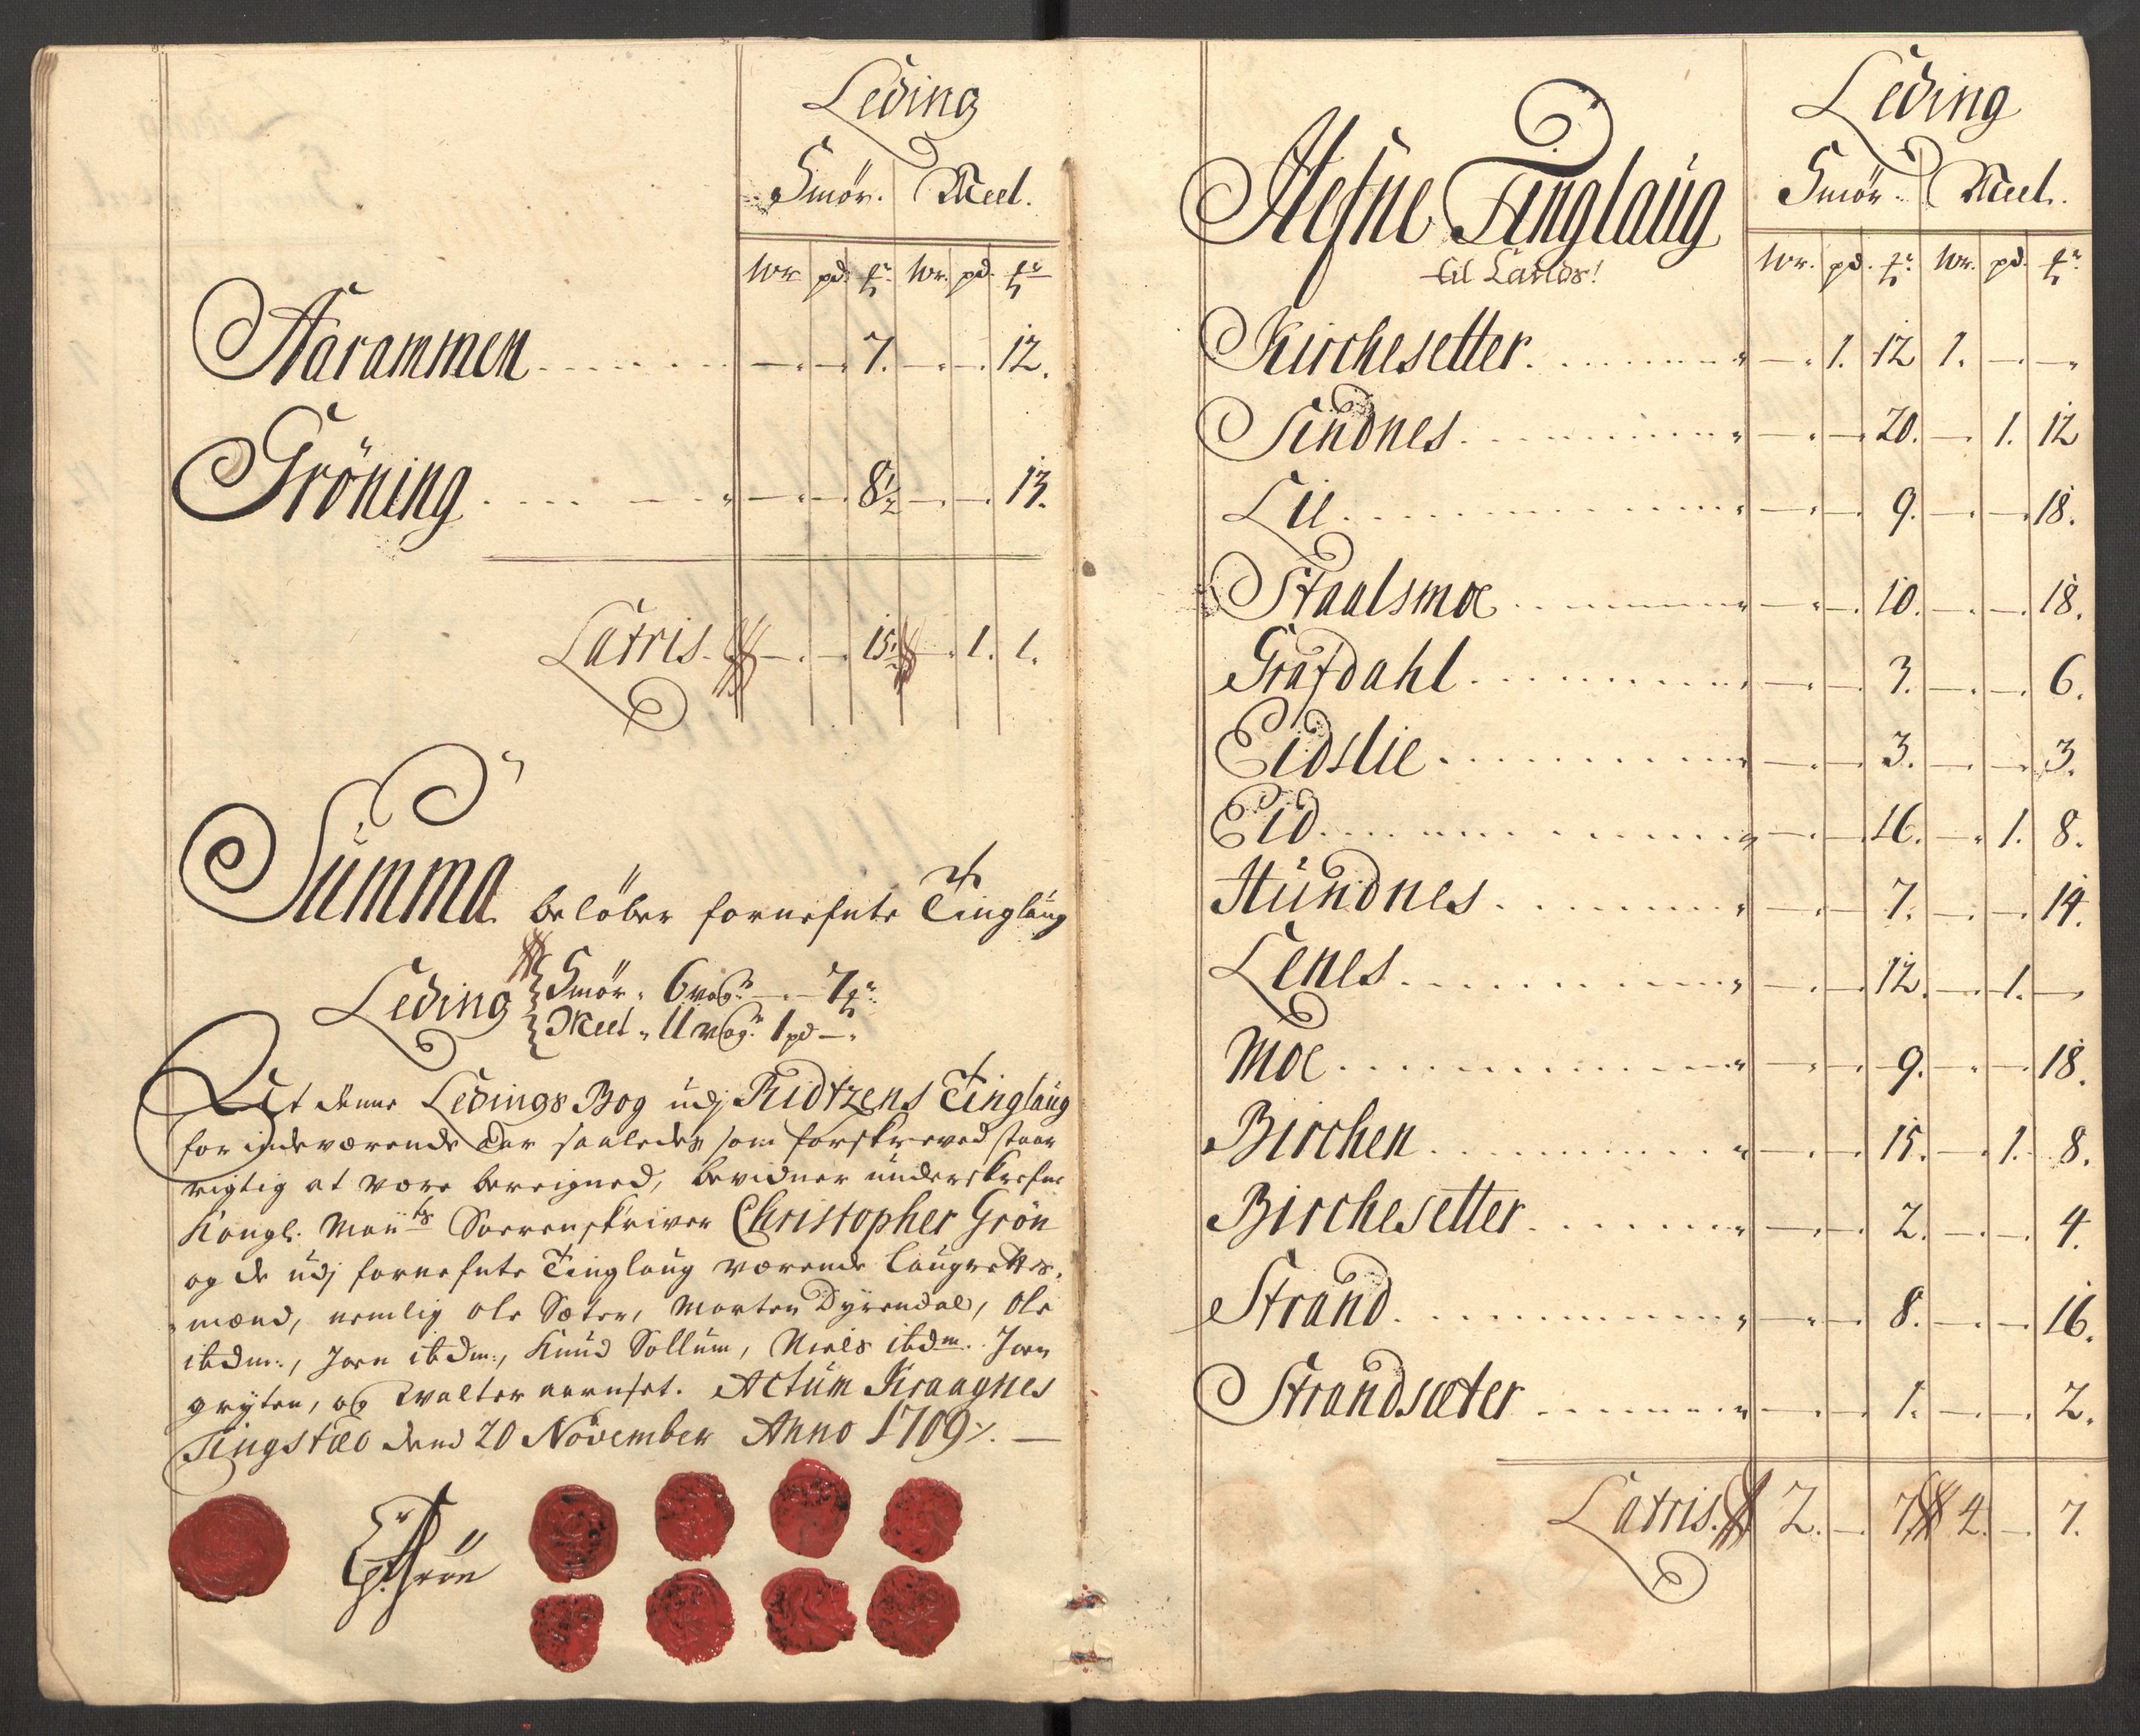 Leding
Smör. Meel.
Wr pd. Wr. pd.
Aarammen - - 7. - - 12.
Gröning - - 8½ - - 13.
Latris - - 15½ - 1. 1.
Summa beløber fornefnte Tinglaug
Leding Smör. 6 wog - 7
Meel. 11 wog. 1 pd -
At denne Ledings Bog udj Ridtzens Tinglaug
for indeværende Aar saaledes som forskreved staar
rigtig at være beregned, bevidner underskrefne
Kongl. May.ts Sorrenskriver Christopher Grön
og de udj fornefnte Tinglaug værende Laugrettes-
mænd, nemlig Ole Sæter, Morten Dyrendal, Ole
ibdm:, Joen ibdm:, Knud Sollum, Niels ibdm. Joen
gryten, og Walter aarnset. Actum Kraagnes
Tingstæd dend 20 November Anno 1709. -
Grön
Leding
Hefne Tinglaug
Smör. Meel.
til Lands!
Wr. pd. Wr. pd.
Kirchesetter - 1. 12 1. - -
Sindnes - - 20. - 1. 12
Lie - - 9. - - 18.
Staalsmoe - - 10. - - 18.
Grafdahl - - 3. - - 6.
Eidslie - - 3. - - 3.
Eid - - 16. - 1. 8.
Hundnes - - 7. - - 14.
Lenes - - 12. - 1. -
Moe - - 9. - - 18.
Birchen - - 15. - 1. 8.
Birchesetter - - 2. - - 4.
Strand - - 8. - - 16.
Strandsæter - - 1. - - 2.
Latris. 2. - 7 4. - 7.